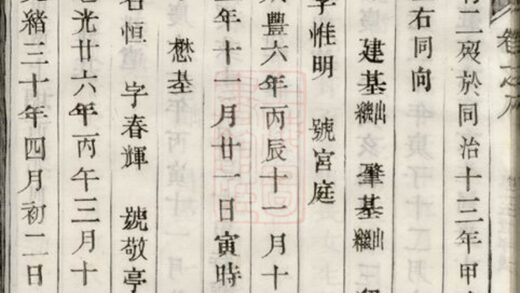 卷之
有二歿於同治十三年甲
右同向
建基出繼 肇基出繼
字惟明 號宮庭
豐六年丙辰十一月十
年十一月廿一日寅時
懋基
名恒 字春輝 號敬亭
光廿六年丙午三月十
光緒三十年四月初二日